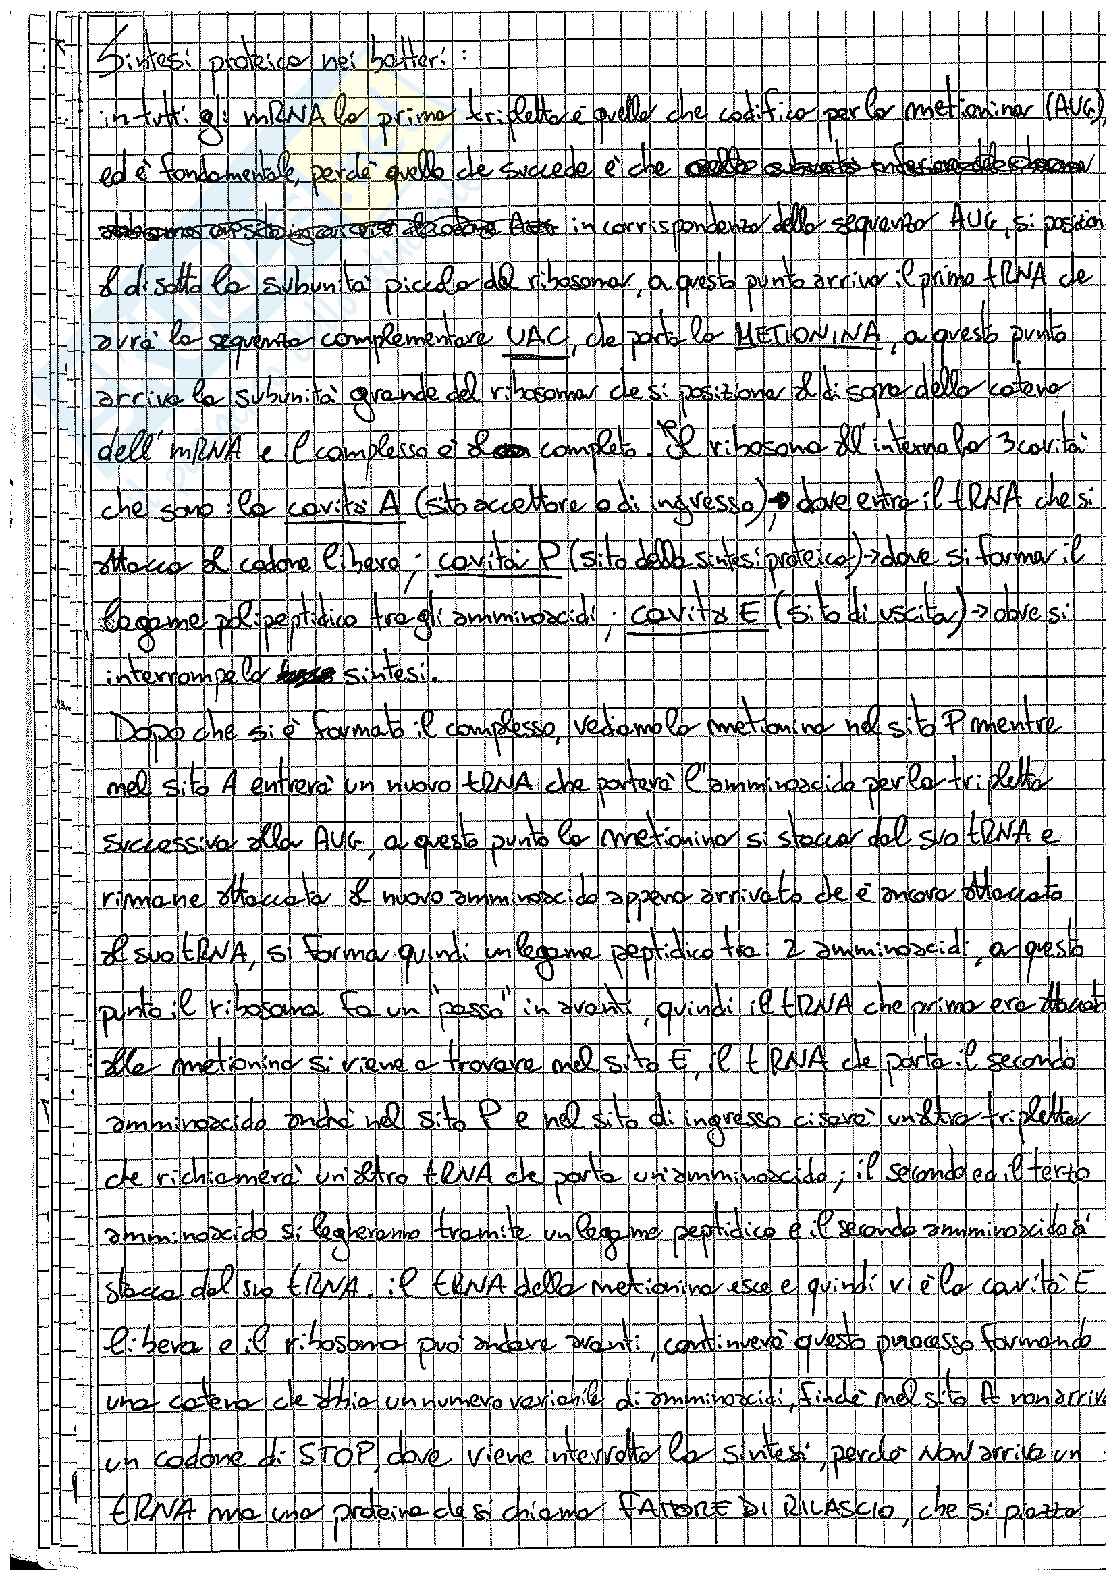 Sintesi proteica nei batteri:
in tutti gli mRNA la prima tripletta è quella che codifica per la metionina (AUG),
ed è fondamentale, perché quello che succede è che
in corrispondenza della sequenza AUG, si posizion
al di sotto la subunità piccola del ribosoma, a questo punto arriva il primo tRNA che
avrà la sequenza complementare UAC, che porta la METIONINA, a questo punto
arriva la subunità grande del ribosoma che si posiziona al di sopra della catena
dell'mRNA e il complesso è al completo. Il ribosoma all'interno ha 3 cavità
che sono: la cavità A (sito accettore o di ingresso) → dove entra il tRNA che si
attacca al codone libero; cavità P (sito della sintesi proteica) → dove si forma il
legame polipeptidico tra gli amminoacidi; cavità E (sito di uscita) → dove si
interrompe la sintesi.
Dopo che si è formato il complesso, vediamo la metionina nel sito P mentre
nel sito A entrerà un nuovo tRNA che porterà l'amminoacido per la tripletta
successiva alla AUG, a questo punto la metionina si stacca dal suo tRNA e
rimane attaccata al nuovo amminoacido appena arrivato che è ancora attaccato
al suo tRNA, si forma quindi un legame peptidico tra i 2 amminoacidi, a questo
punto il ribosoma fa un "passo" in avanti, quindi il tRNA che prima era attaccato
alla metionina si viene a trovare nel sito E, il tRNA che porta il secondo
amminoacido andrà nel sito P e nel sito di ingresso ci sarà un'altra tripletta
che richiamerà un'altro tRNA che porta un'amminoacido; il secondo ed il terzo
amminoacido si legheranno tramite un legame peptidico e il secondo amminoacido si
stacca dal suo tRNA. il tRNA della metionina esce e quindi vi è la cavità E
libera e il ribosoma può andare avanti, continuerà questo processo formando
una catena che abbia un numero variabile di amminoacidi, finché nel sito A non arriva
un codone di STOP, dove viene interrotta la sintesi, perché NON arriva un
tRNA ma una proteina che si chiama FATTORE DI RILASCIO, che si piazza